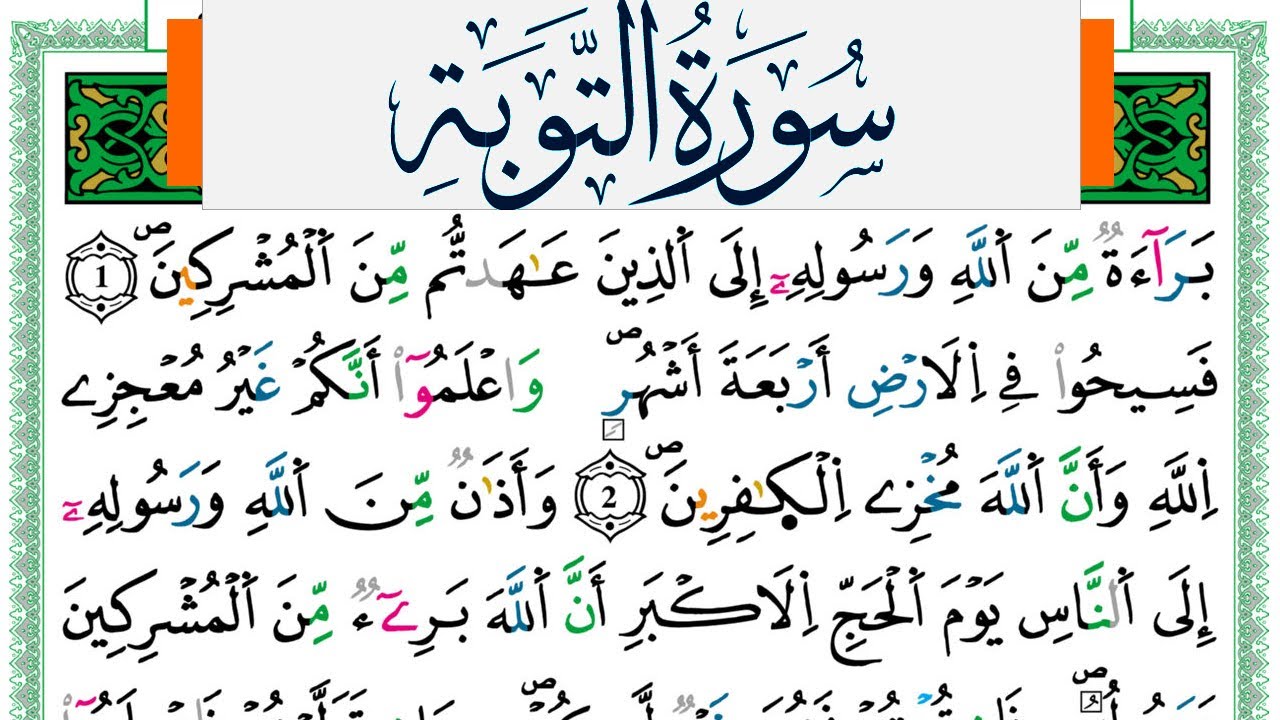 سُورَةُ التَّوْبَةِ
بَرَآءَةٞ مِّنَ اَ۬للَّهِ وَرَسُولِهِۦٓ إِلَى اَ۬لذِينَ عَٰهَدتُّم مِّنَ اَ۬لْمُشْرِكِينَۖ 1
فَسِيحُواْ فِے اِ۬لَارْضِ أَرْبَعَةَ أَشْهُرٖۖ وَاعْلَمُوٓاْ أَنَّكُمْ غَيْرُ مُعْجِزِے
اِ۬للَّهِ وَأَنَّ اَ۬للَّهَ مُخْزِے اِ۬لْكٰ۪فِرِينَۖ 2 وَأَذَٰنٞ مِّنَ اَ۬للَّهِ وَرَسُولِهِۦٓ
إِلَى اَ۬لنَّاسِ يَوْمَ اَ۬لْحَجِّ اِ۬لَاكْبَرِ أَنَّ اَ۬للَّهَ بَرِےٓءٞ مِّنَ اَ۬لْمُشْرِكِينَ